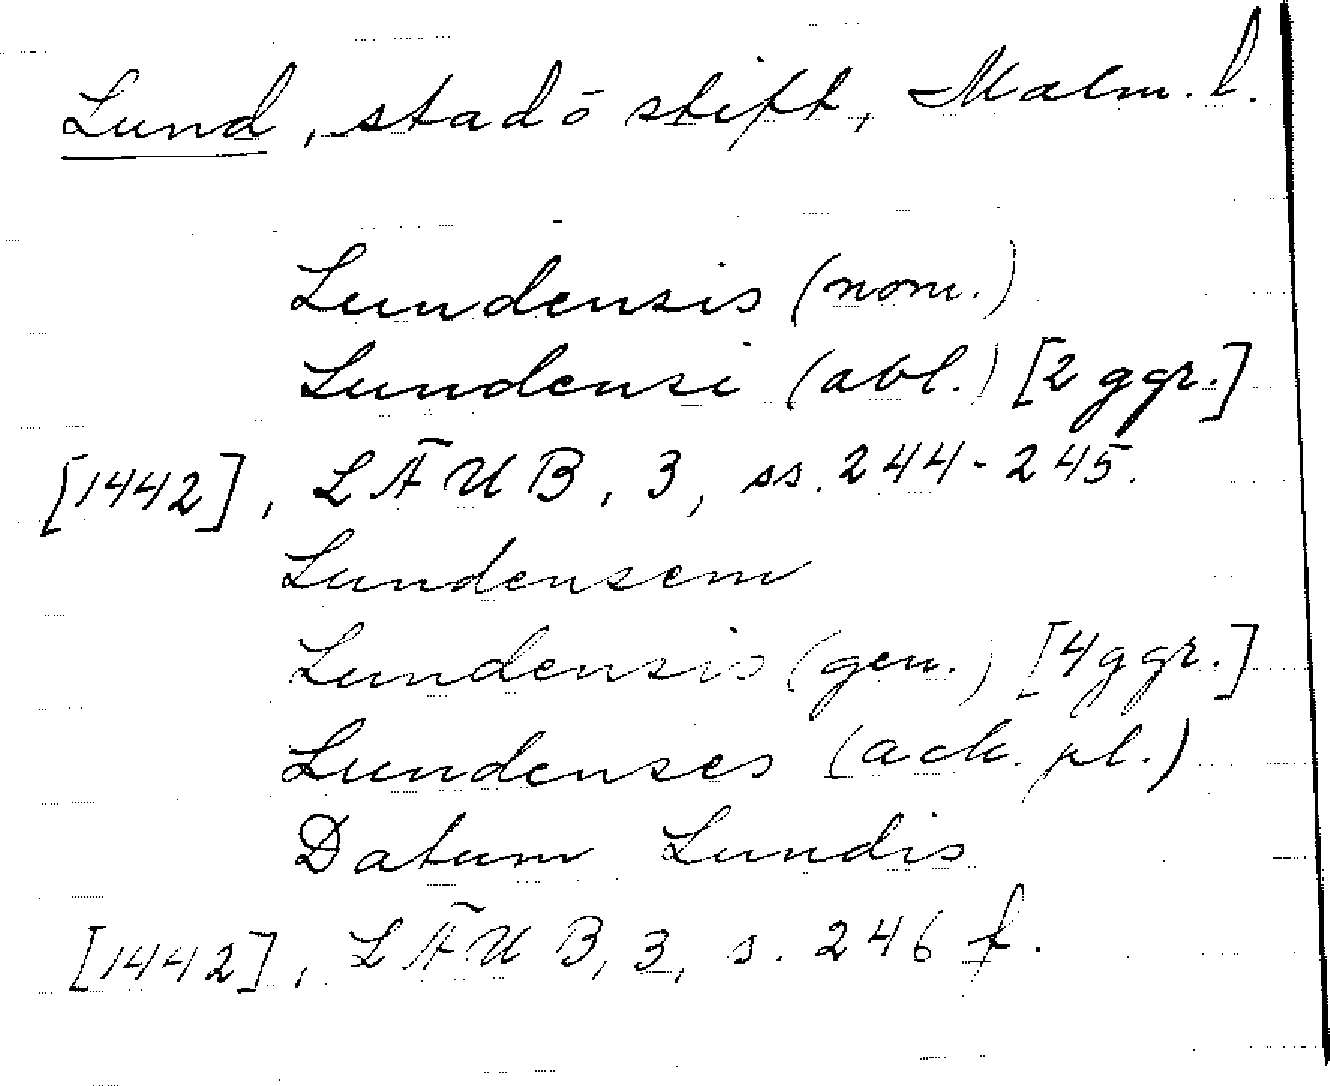 Lund, stad o stift, Malm. l.
Lundensis (nom.)
Lundensi (abl.) [2 ggr.]
[1442], LÄUB, 3, ss. 244-245.
Lundensem
Lundensis (gen.) [4 ggr.]
Lundenses (ack. pl.)
Datum Lundis
[1442], LÄUB, 3, s. 246 f.